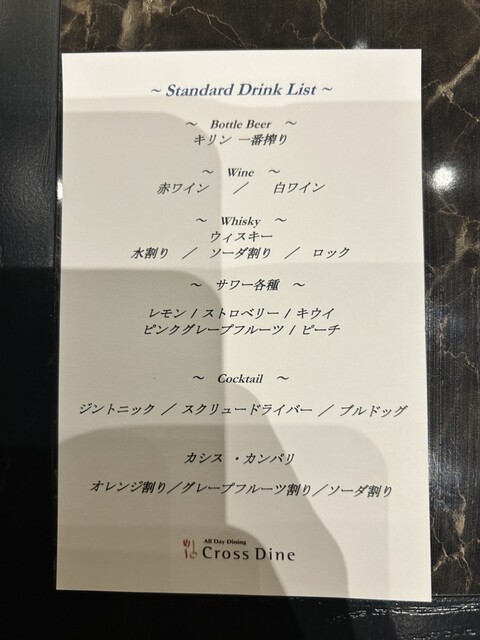 ~ Standard Drink List ~
～ Bottle Beer ～
キリン 一番搾り
～ Wine ～
赤ワイン ／ 白ワイン
～ Whisky ～
ウィスキー
水割り ／ ソーダ割り ／ ロック
～ サワー各種 ～
レモン / ストロベリー / キウイ
ピンクグレープフルーツ / ピーチ
～ Cocktail ～
ジントニック ／ スクリュードライバー ／ ブルドッグ
カシス ・カンパリ
オレンジ割り／グレープフルーツ割り／ソーダ割り
All Day Dining
Cross Dine